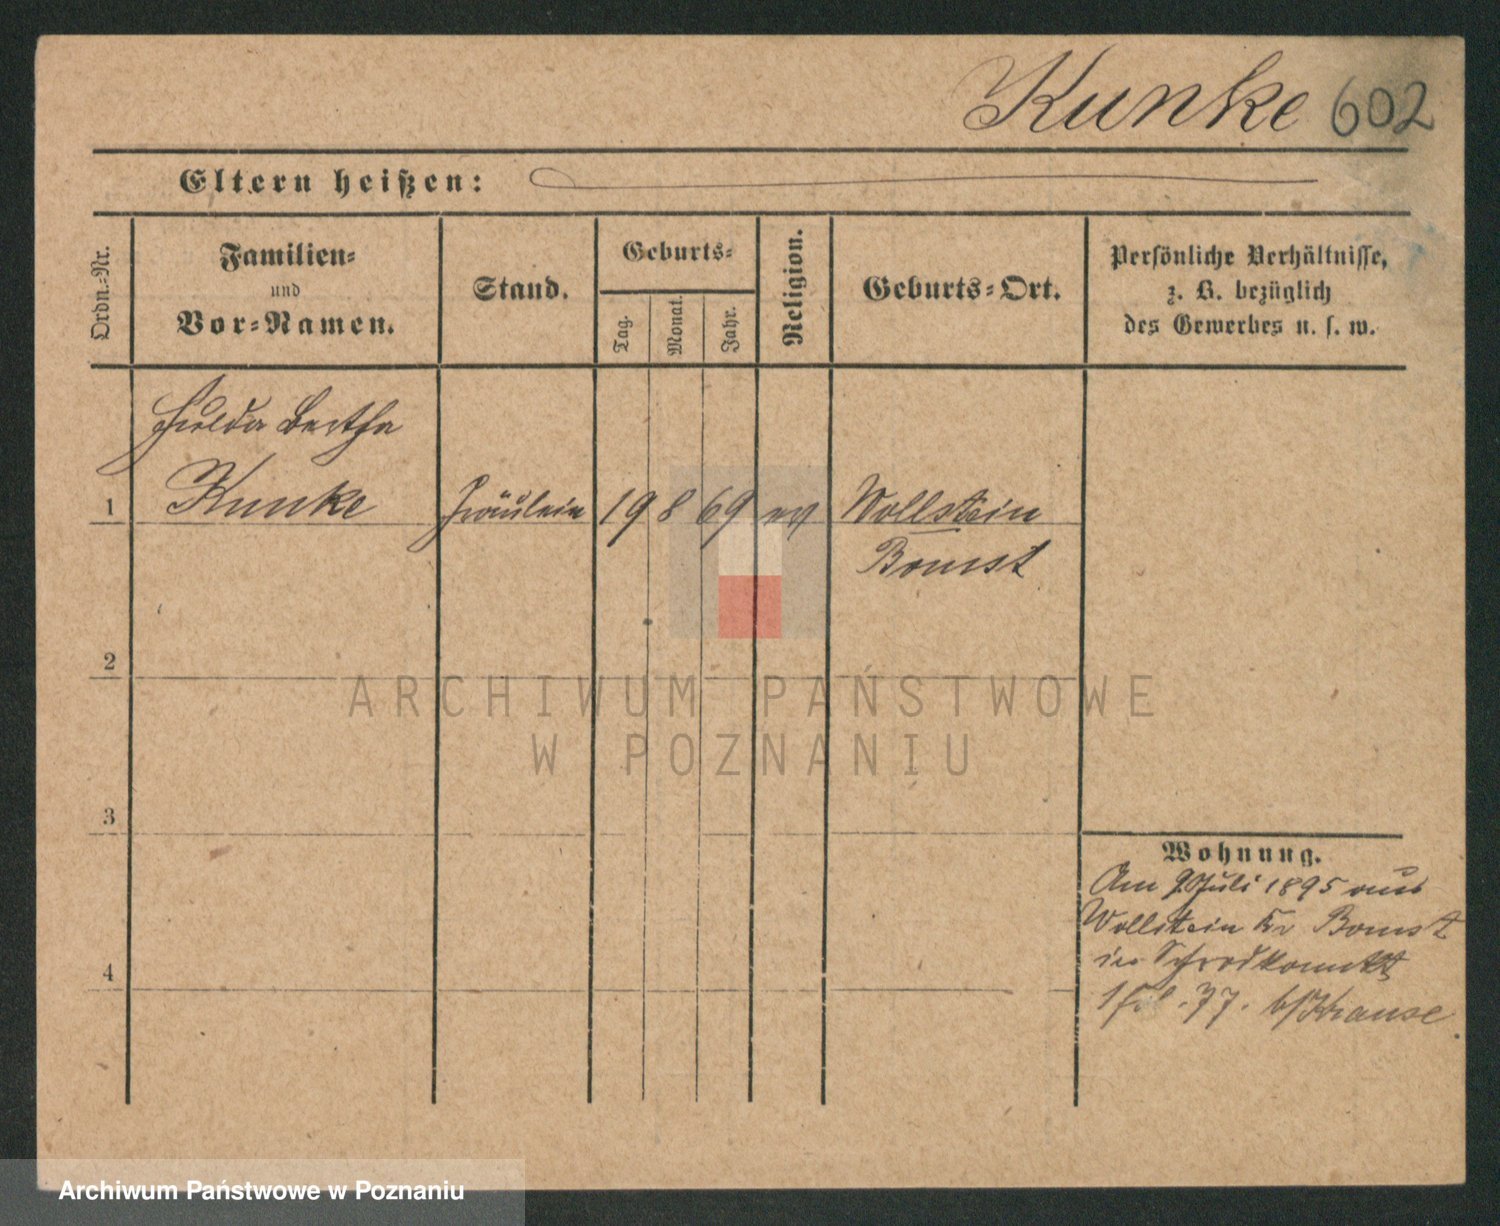 Kunke 602
Eltern heißen:
Ordn.-Nr.
Familien-
und
Vor-Namen.
Stand.
Geburts-
Tag.
Monat.
Jahr.
Religion.
Geburts-Ort.
Persönliche Verhältnisse,
z. B. bezüglich
des Gewerbes u. s. w.
Hulda Bertha
1 Kunke Fräulein 19 8 69 ev Wollstein
Bomst
2
ARCHIWUM PAŃSTWOWE
W POZNANIU
3
Wohnung.
Am 9 Juli 1895 aus
Wollstein Kr Bomst
in
4
77. b/Krause
Archiwum Państwowe w Poznaniu